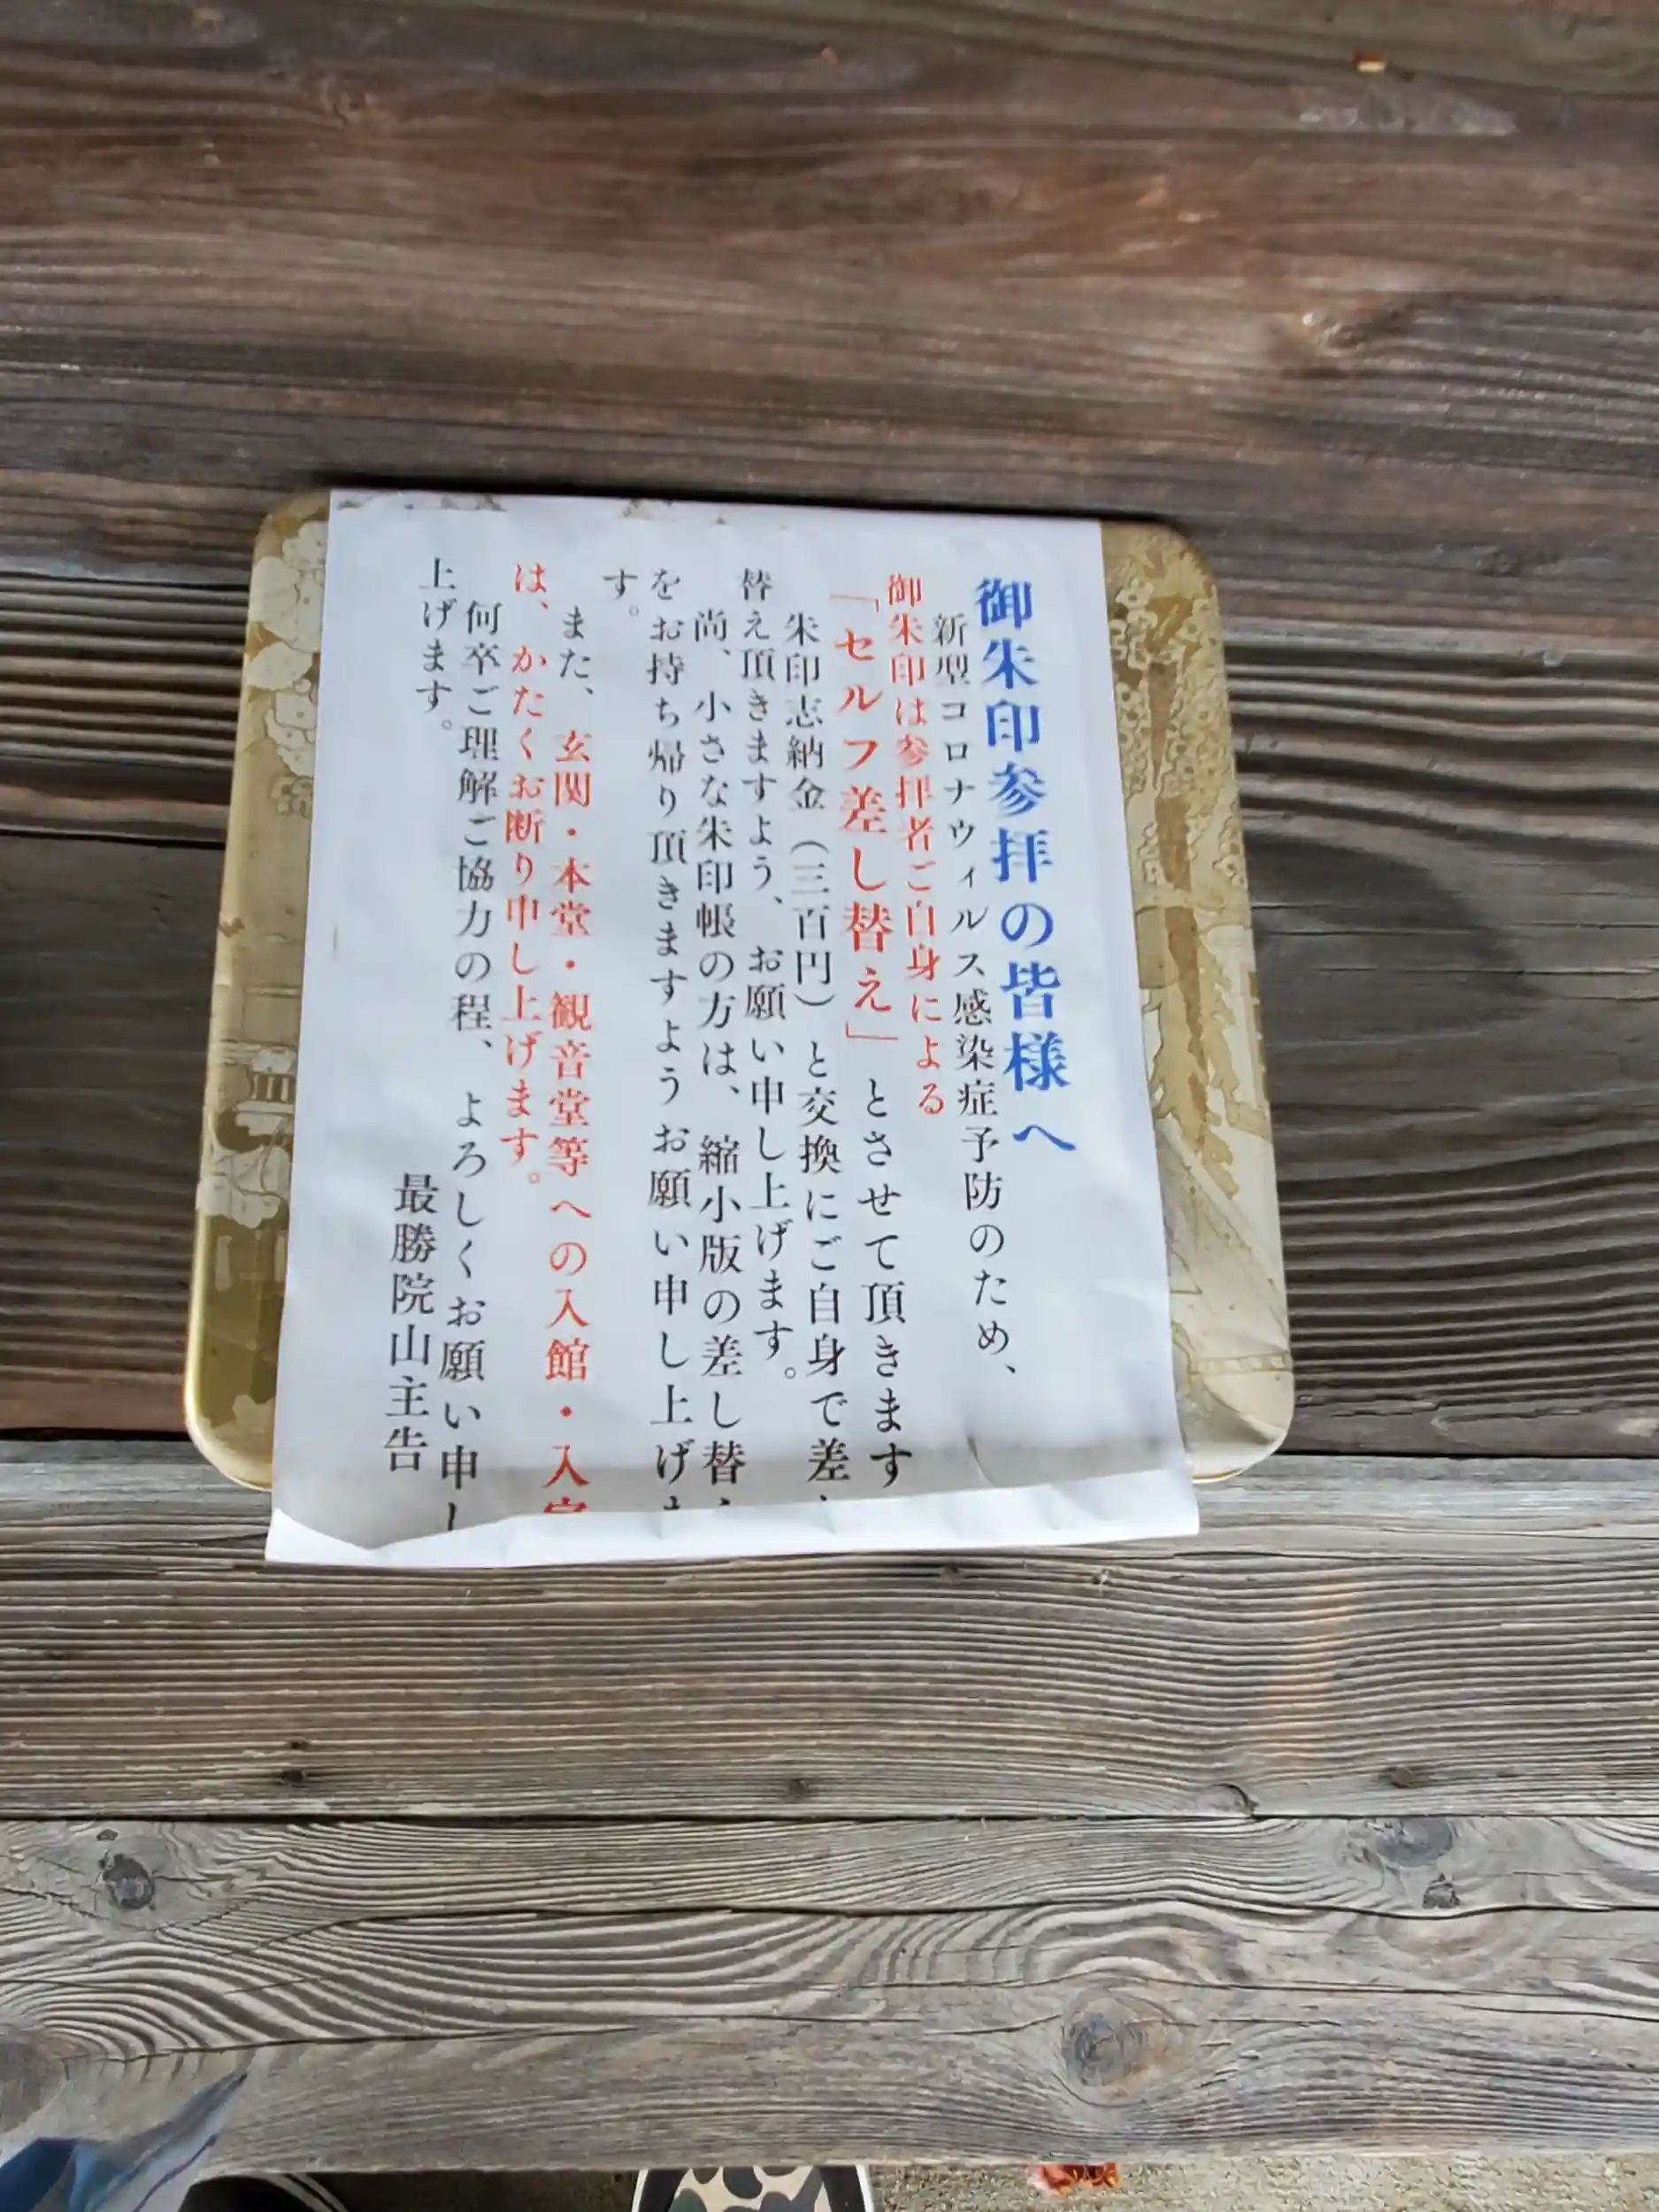 御朱印参拝の皆様へ
新型コロナウィルス感染症予防のため、
御朱印は参拝者ご自身による
「セルフ差し替え」とさせて頂きます
朱印志納金（三百円）と交換にご自身で差
替え頂きますよう、お願い申し上げます。
尚、小さな朱印帳の方は、縮小版の差し替
をお持ち帰り頂きますようお願い申し上げ
す。
また、玄関・本堂・観音堂等への入館・入
は、かたくお断り申し上げます。
何卒ご理解ご協力の程、よろしくお願い申し
上げます。
最勝院山主告